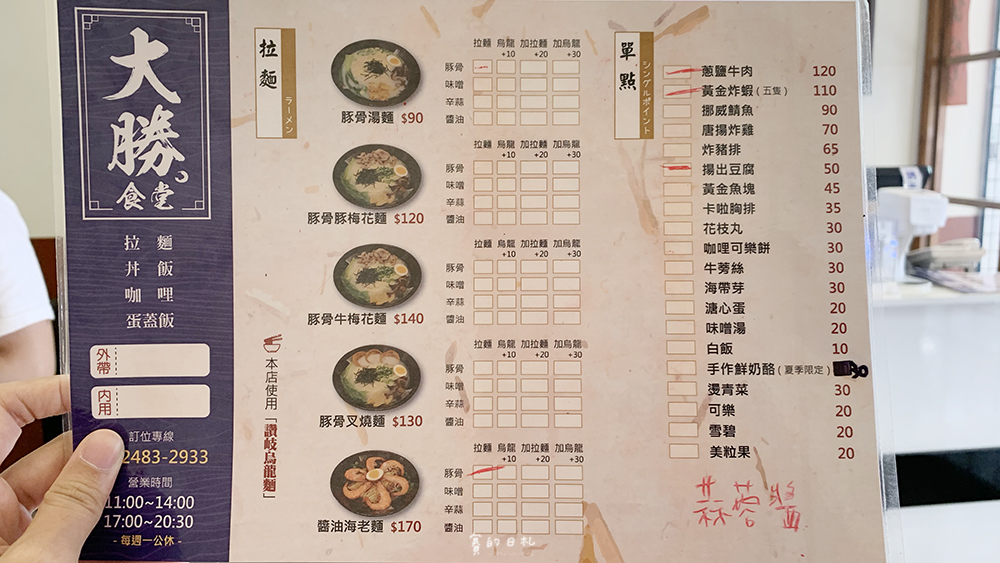 大勝
食堂
拉 麵
丼 飯
咖 哩
蛋蓋飯
外帶
内用
訂位專線
2483-2933
營業時間
11:00~14:00
17:00~20:30
- 每週一公休 -
拉麵
ラーメン
拉麵 烏龍 加拉麵 加烏龍
+10 +20 +30
豚骨
味噌
辛蒜
醬油
豚骨湯麵 $90
拉麵 烏龍 加拉麵 加烏龍
+10 +20 +30
豚骨
味噌
辛蒜
醬油
豚骨豚梅花麵 $120
拉麵 烏龍 加拉麵 加烏龍
+10 +20 +30
豚骨
味噌
辛蒜
醬油
豚骨牛梅花麵 $140
拉麵 烏龍 加拉麵 加烏龍
+10 +20 +30
豚骨
味噌
辛蒜
醬油
豚骨叉燒麵 $130
拉麵 烏龍 加拉麵 加烏龍
+10 +20 +30
豚骨
味噌
辛蒜
醬油
醬油海老麵 $170
本店使用「讚岐烏龍麵」
單點
シングルポイント
蔥鹽牛肉 120
黃金炸蝦（五隻） 110
挪威鯖魚 90
唐揚炸雞 70
炸豬排 65
揚出豆腐 50
黃金魚塊 45
卡啦胸排 35
花枝丸 30
咖哩可樂餅 30
牛蒡絲 30
海帶芽 30
溏心蛋 20
味噌湯 20
白飯 10
手作鮮奶酪（夏季限定） 30
燙青菜 30
可樂 20
雪碧 20
美粒果 20
蒜蓉醬
賓的日札